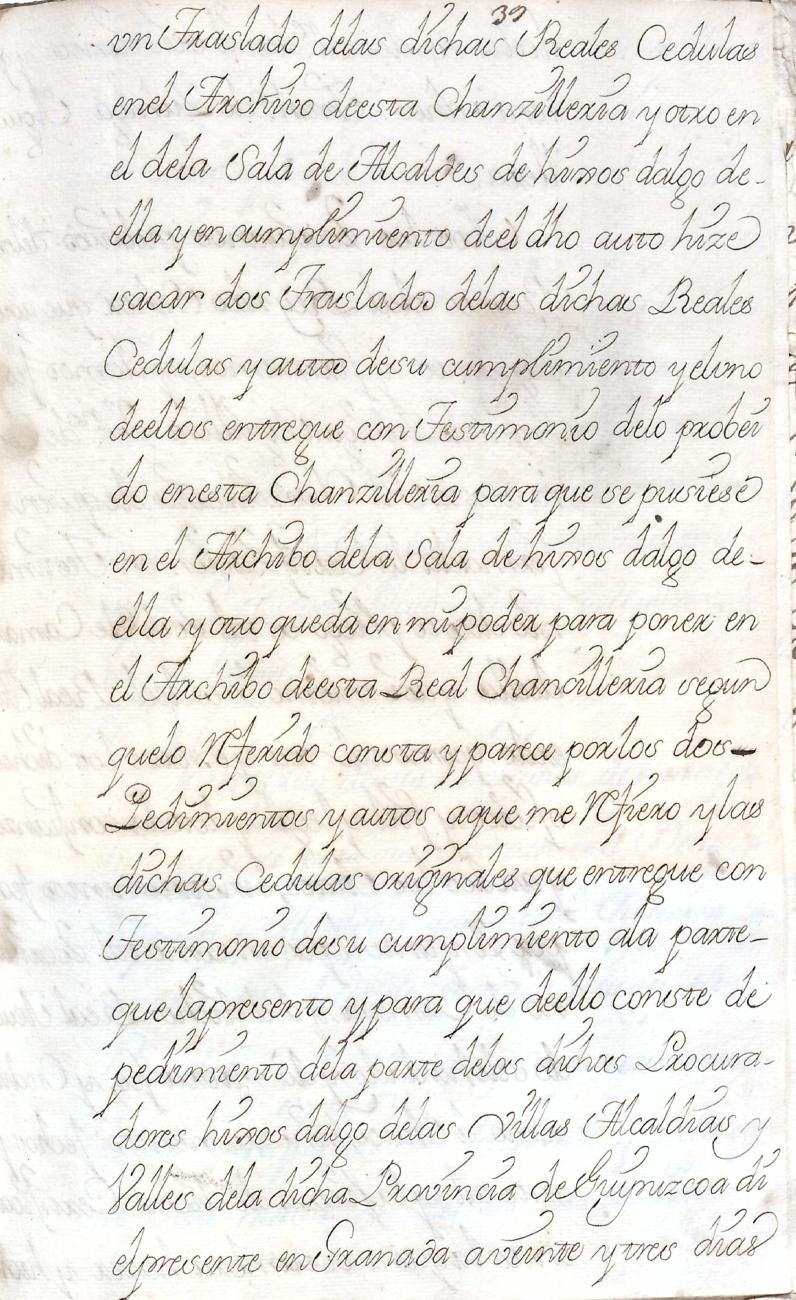 39
vn Traslado delas dichas Reales Cedulas
enel Archivo deesta Chanzilleria y otro en
el dela Sala de Alcaldes de hixos dalgo de-
ella y en cumplimiento deel dho auto hize
sacar dos Traslados delas dichas Reales
Cedulas y autos desu cumplimiento y eluno
deellos entregue con Testimonio delo probei
do enesta Chanzilleria para que se pusiese
en el Archibo dela Sala de hixos dalgo de-
ella y otro queda en mi poder para poner en
el Archibo deesta Real Chancilleria segun
quelo Referido consta y parece por los dos-
Pedimientos y autos a que me Refiero y las
dichas Cedulas originales que entregue con
Testimonio desu cumplimiento ala parte-
que lapresento y para que deello conste de
pedimiento dela parte delos dichos Procura-
dores hixos dalgo delas Villas Alcaldias y
Valles dela dicha Provincia de Guypuzcoa di
elpresente en Granada a veinte y tres dias